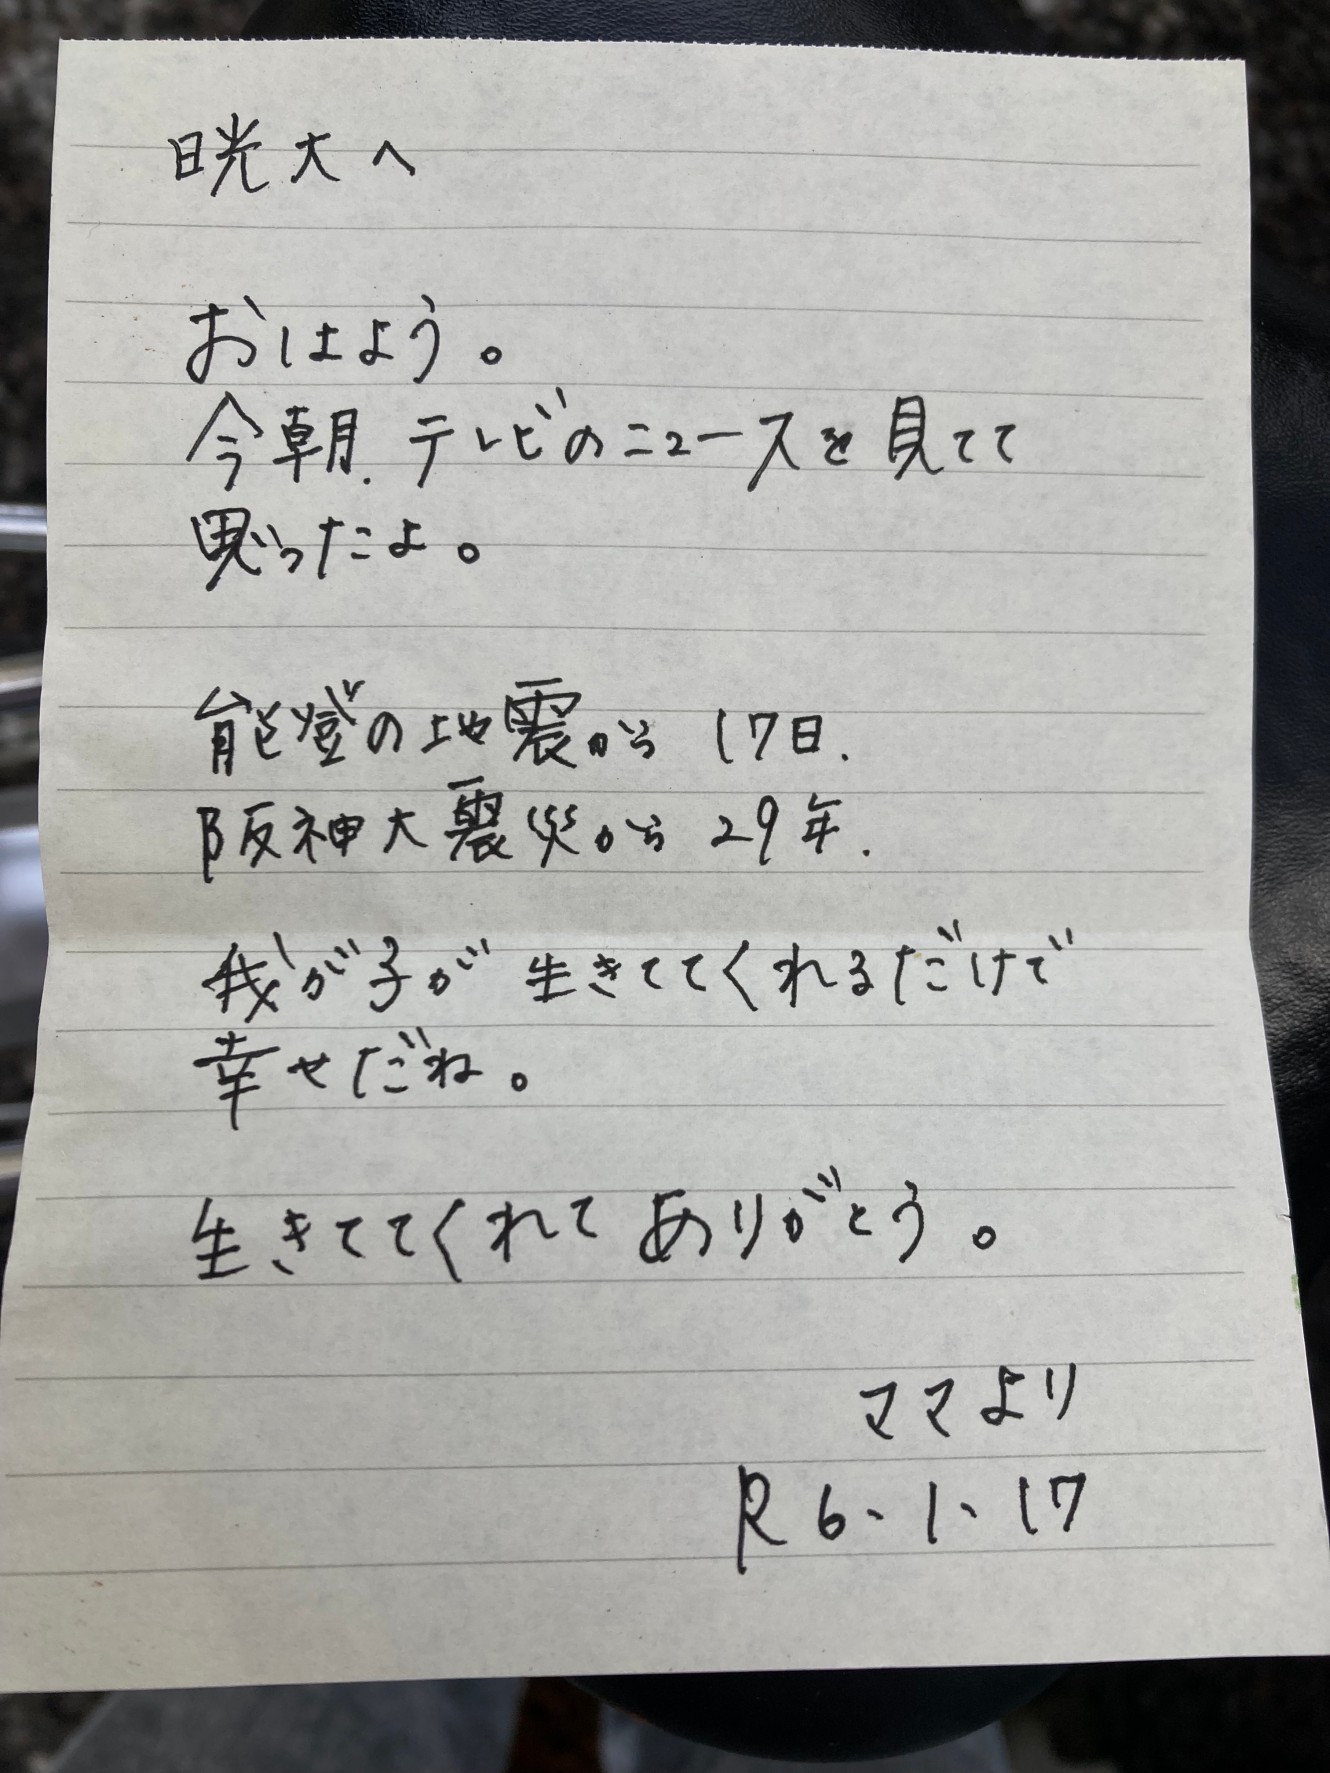 晄大へ
おはよう。
今朝、テレビのニュースを見てて
思ったよ。
能登の地震から 17日、
阪神大震災から 29年、
我が子が 生きててくれるだけで
幸せだね。
生きててくれて ありがとう。
ママより
R 6、1、17